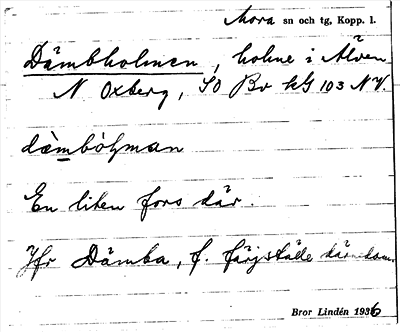 Mora sn och tg, Kopp. l.
Dämbholmen, holme i Älven
N Oxberg, SO Bv kG 103 NV.
dämbòlman
En liten fors där.
Jfr Dämba, f. färjställe
Bror Lindén 1936